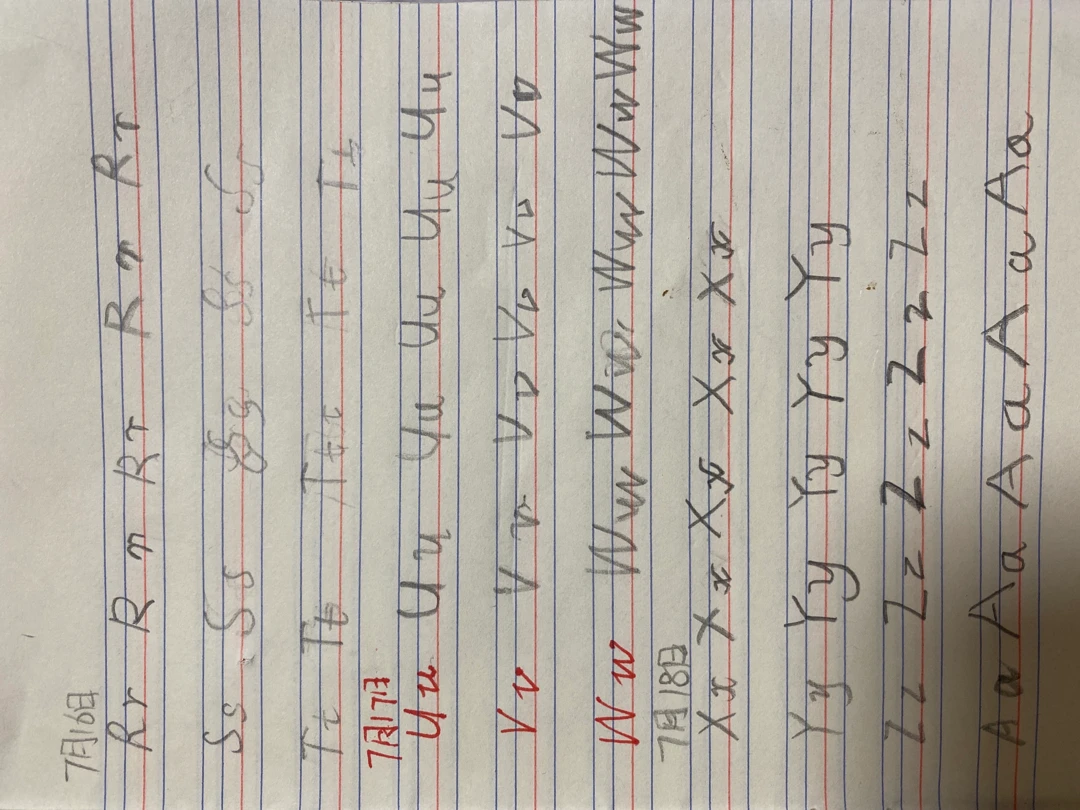 7月16日
Rr R r Rr R r Rr
Ss Ss Ss Ss Ss
Tt Tt Tt Tt Tt
7月17日
Uu Uu Uu Uu Uu Uu
Vv Vv Vv Vv Vv Vv
Ww Ww Ww Ww Ww Ww
7月18日
Xx Xx Xx Xx Xx
Yy Yy Yy Yy Yy
Zz Zz Zz Zz Zz
Aa Aa Aa Aa Aa